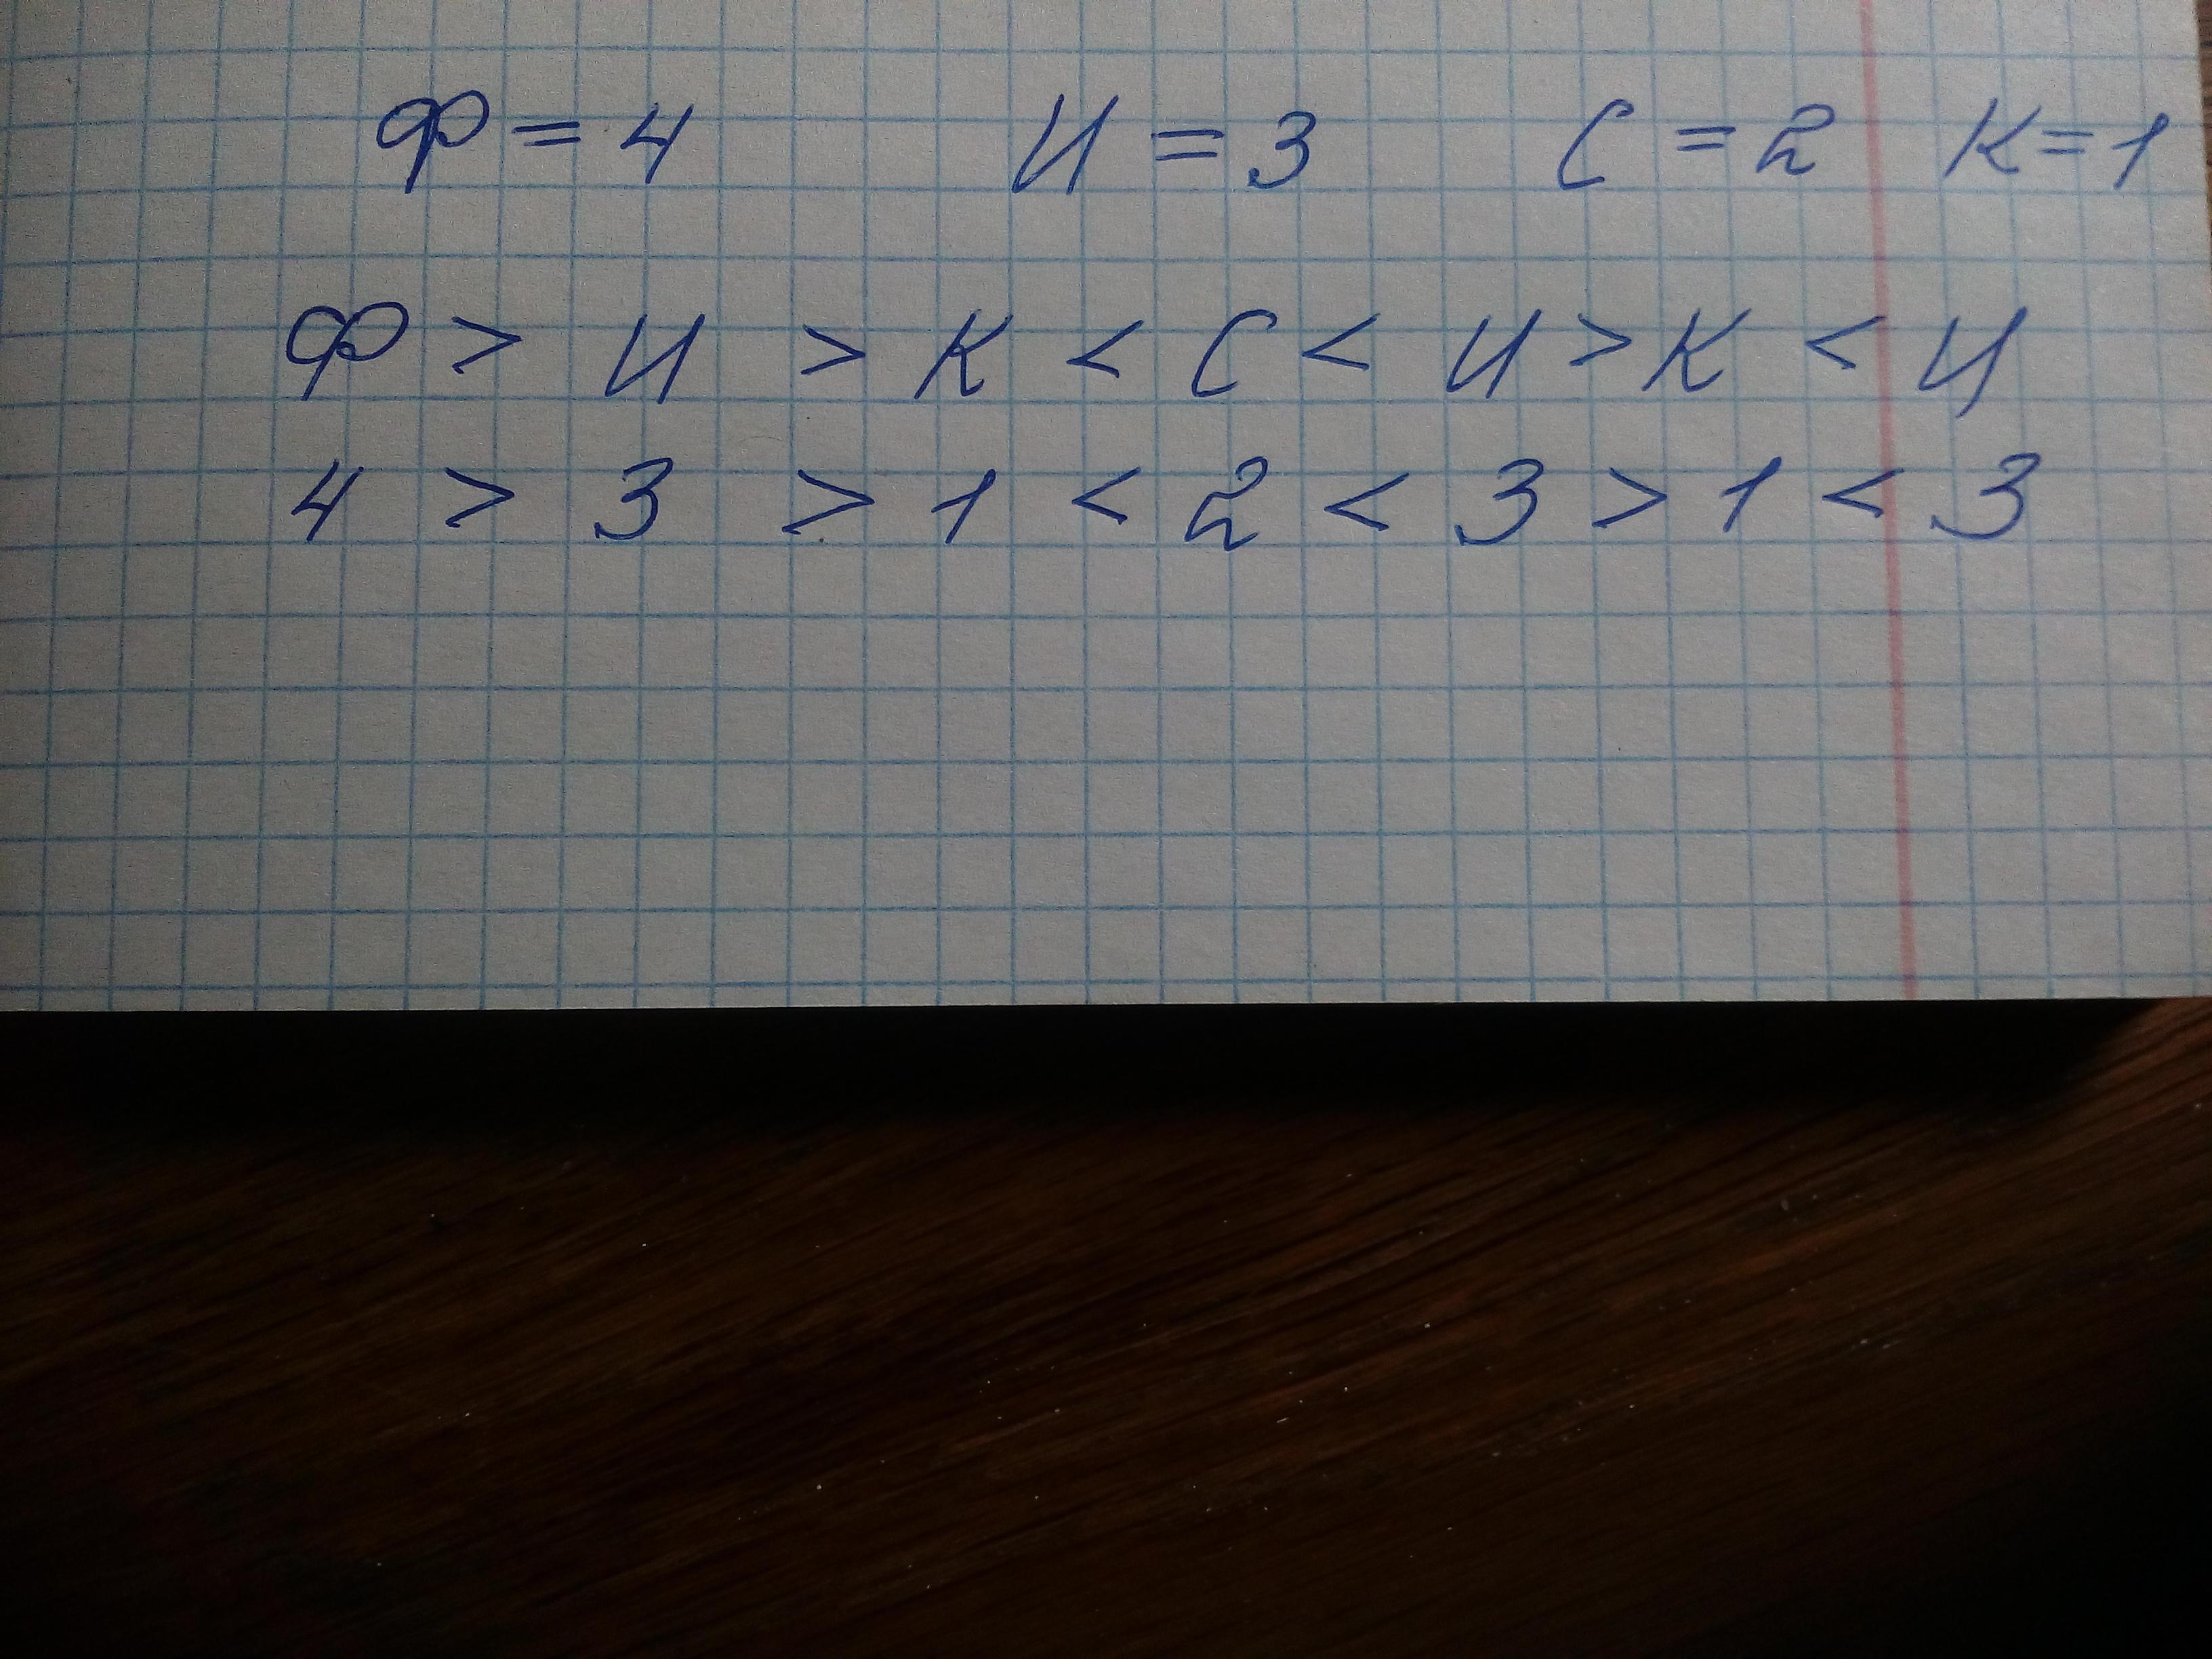 Ф = 4 И = 3 С = 2 К = 1
Ф > И > К < С < И > К < И
4 > 3 > 1 < 2 < 3 > 1 < 3